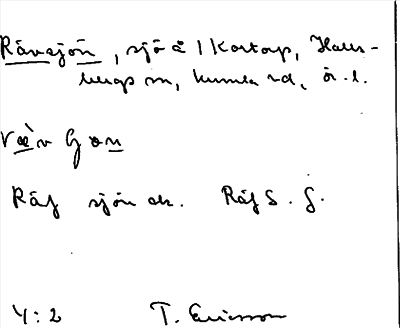 Rävasjön, sjö å 1 Kartap, Halls-
bergs sn, Kumla hd, ör. l.
Ræ̀v ʃɷn
Räf sjön ek. Räf S. G.
4:2 T. Ericsson